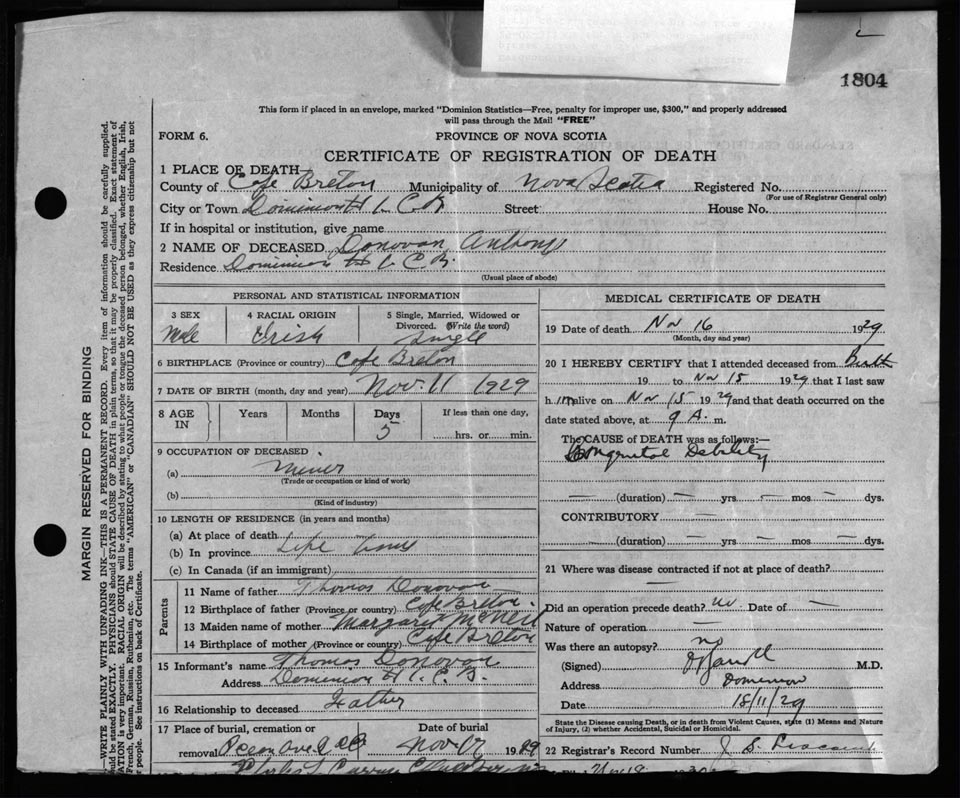 1804
This form if placed in an envelope, marked "Dominion Statistics—Free, penalty for improper use, $300," and properly addressed
will pass through the Mail "FREE"
FORM 6.
PROVINCE OF NOVA SCOTIA
CERTIFICATE OF REGISTRATION OF DEATH
1 PLACE OF DEATH
County of Cape Breton Municipality of Nova Scotia Registered No.
(For use of Registrar General only)
City or Town Dominion C.B. Street House No.
If in hospital or institution, give name
2 NAME OF DECEASED Donovan Anthony
Residence Dominion C B.
(Usual place of abode)
PERSONAL AND STATISTICAL INFORMATION
3 SEX Male
4 RACIAL ORIGIN Irish
5 Single, Married, Widowed or Divorced. (Write the word) Single
6 BIRTHPLACE (Province or country) Cape Breton
7 DATE OF BIRTH (month, day and year) Nov. 11 1929
8 AGE IN Years Months Days 5 If less than one day, hrs. or min.
9 OCCUPATION OF DECEASED
(a) Miner
(Trade or occupation or kind of work)
(b)
(Kind of industry)
10 LENGTH OF RESIDENCE (in years and months)
(a) At place of death
(b) In province Life time
(c) In Canada (if an immigrant)
Parents
11 Name of father Thomas Donovan
12 Birthplace of father (Province or country) Cape Breton.
13 Maiden name of mother Margaret McNeil
14 Birthplace of mother (Province or country) Cape Breton
15 Informant's name Thomas Donovan
Address Dominion C.B.
16 Relationship to deceased Father
17 Place of burial, cremation or removal
Date of burial
Nov 17 1929
MEDICAL CERTIFICATE OF DEATH
19 Date of death Nov 16 1929
(Month, day and year)
20 I HEREBY CERTIFY that I attended deceased from Birth
19 to Nov 15 1929 that I last saw
h im alive on Nov 15 1929 and that death occurred on the
date stated above, at 9 A. m.
The CAUSE OF DEATH was as follows:—
Congenital Debility
— (duration) — yrs. — mos — dys.
CONTRIBUTORY —
— (duration) — yrs — mos — dys.
21 Where was disease contracted if not at place of death?
—
Did an operation precede death? no Date of —
Nature of operation —
Was there an autopsy? no
(Signed) M.D.
Address Dominion
Date 18/11/29
State the Disease causing Death, or in death from Violent Causes, state (1) Means and Nature
of Injury, (2) whether Accidental, Suicidal or Homicidal.
22 Registrar's Record Number
MARGIN RESERVED FOR BINDING
—WRITE PLAINLY WITH UNFADING INK—THIS IS A PERMANENT RECORD. Every item of information should be carefully supplied.
should be stated EXACTLY. PHYSICIANS should STATE CAUSE OF DEATH in plain terms, so that it may be properly classified. Exact statement of
ATION is very important. RACIAL ORIGIN will be described by stating to what people or tongue the deceased person belonged, whether English, Irish,
French, German, Russian, Ruthenian, etc. The terms "AMERICAN" or "CANADIAN" SHOULD NOT BE USED as they express citizenship but not
people. See instructions on back of Certificate.